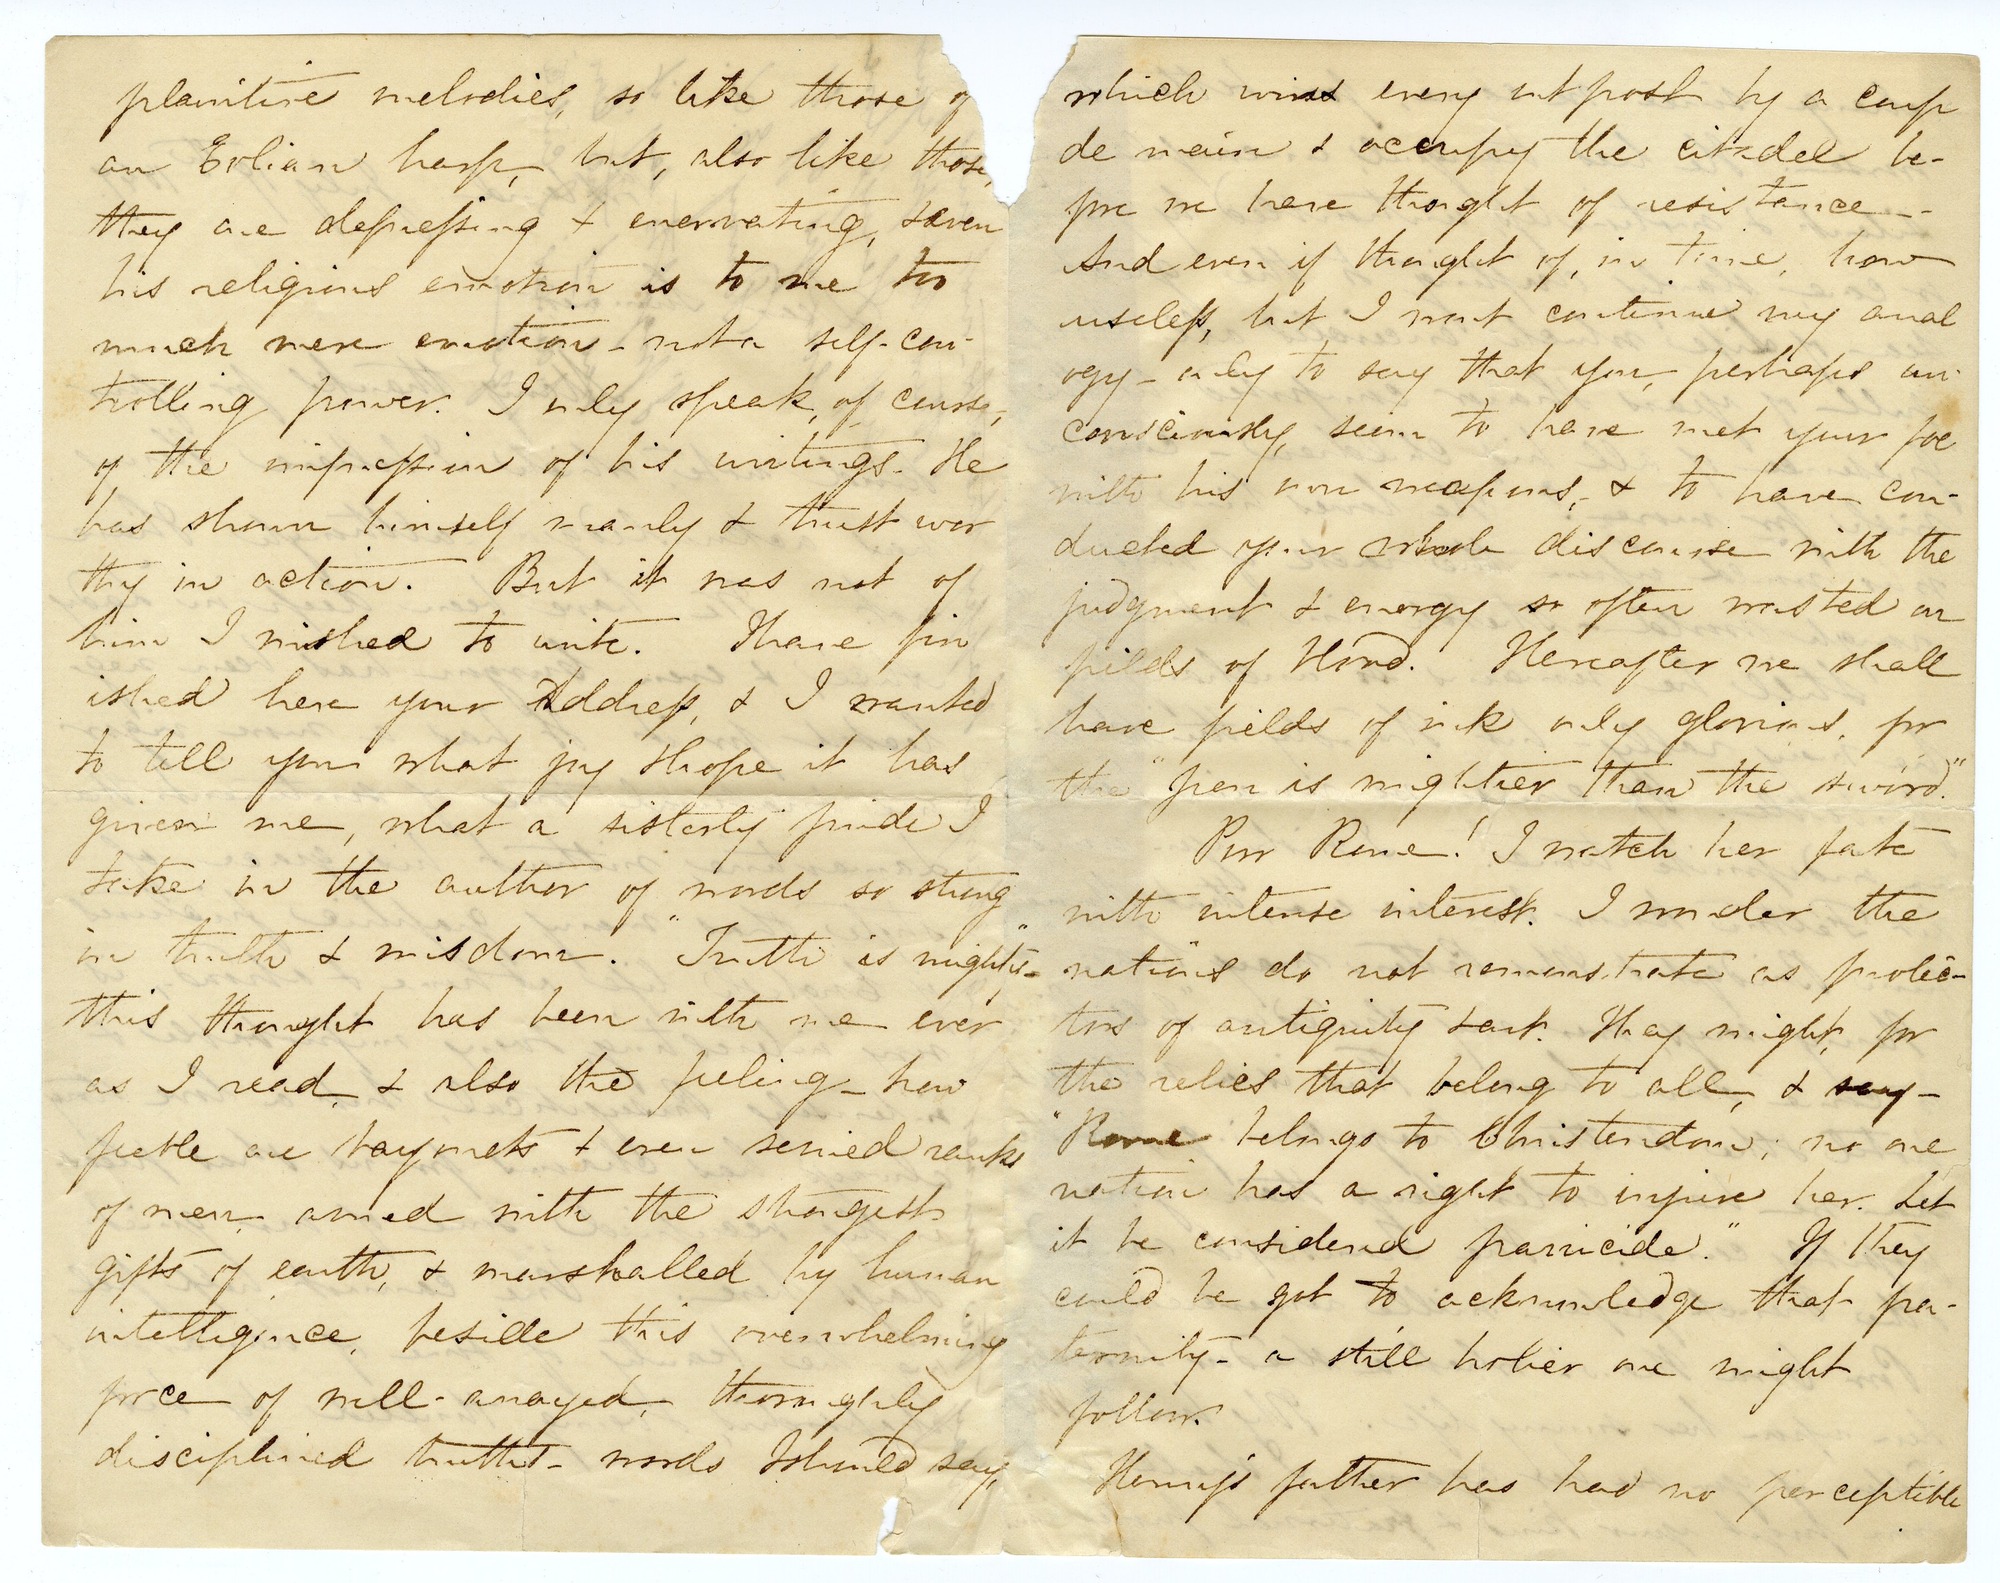 plaintive melodies, so like those of
an Eolian harp, but, also like those,
they are depressing & enervating, & even
his religious emotion is to me too
much mere emotion - not a self-con-
trolling power. I only speak, of course,
of the impression of his writings. He
has shown himself manly & trustwor
thy in action. But it was not of
him I wished to write. I have fin
ished here your Address, & I wanted
to tell you what joy & hope it has
given me, what a sisterly pride I
take in the author of words so strong
in truth & wisdom. "Truth is mighty" -
this thought has been with me ever
as I read, & also the feeling - how
feeble are bayonets & even serried ranks
of men armed with the strongest
gifts of earth, & marshalled by human
intelligence, beside this overwhelming
force of well-arrayed, thoroughly
disciplined truths - words I should say,
which wins every outpost by a coup
de main & occupy the citadel be-
fore we have thought of resistance -
And even if thought of, in time, how
useless, but I wont continue my anal
ogy - only to say that you, perhaps un-
consciously, seem to have met your foe
with his own weapons, & to have con-
ducted your whole discourse with the
judgment & energy so often wasted on
fields of blood. Hereafter we shall
have fields of ink only glorious, for
the "pen is mightier than the sword."
Poor Rome! I watch her fate
with intense interest. I wonder the
nations do not remonstrate as protec-
tors of antiquity & art. They might, for
the relics that belong to all, & say -
"Rome belongs to Christendom; no one
nation has a right to injure her. Let
it be considered parricide." If they
could be got to acknowledge that pa-
ternity - a still holier one might
follow.
Henry's father has had no perceptible